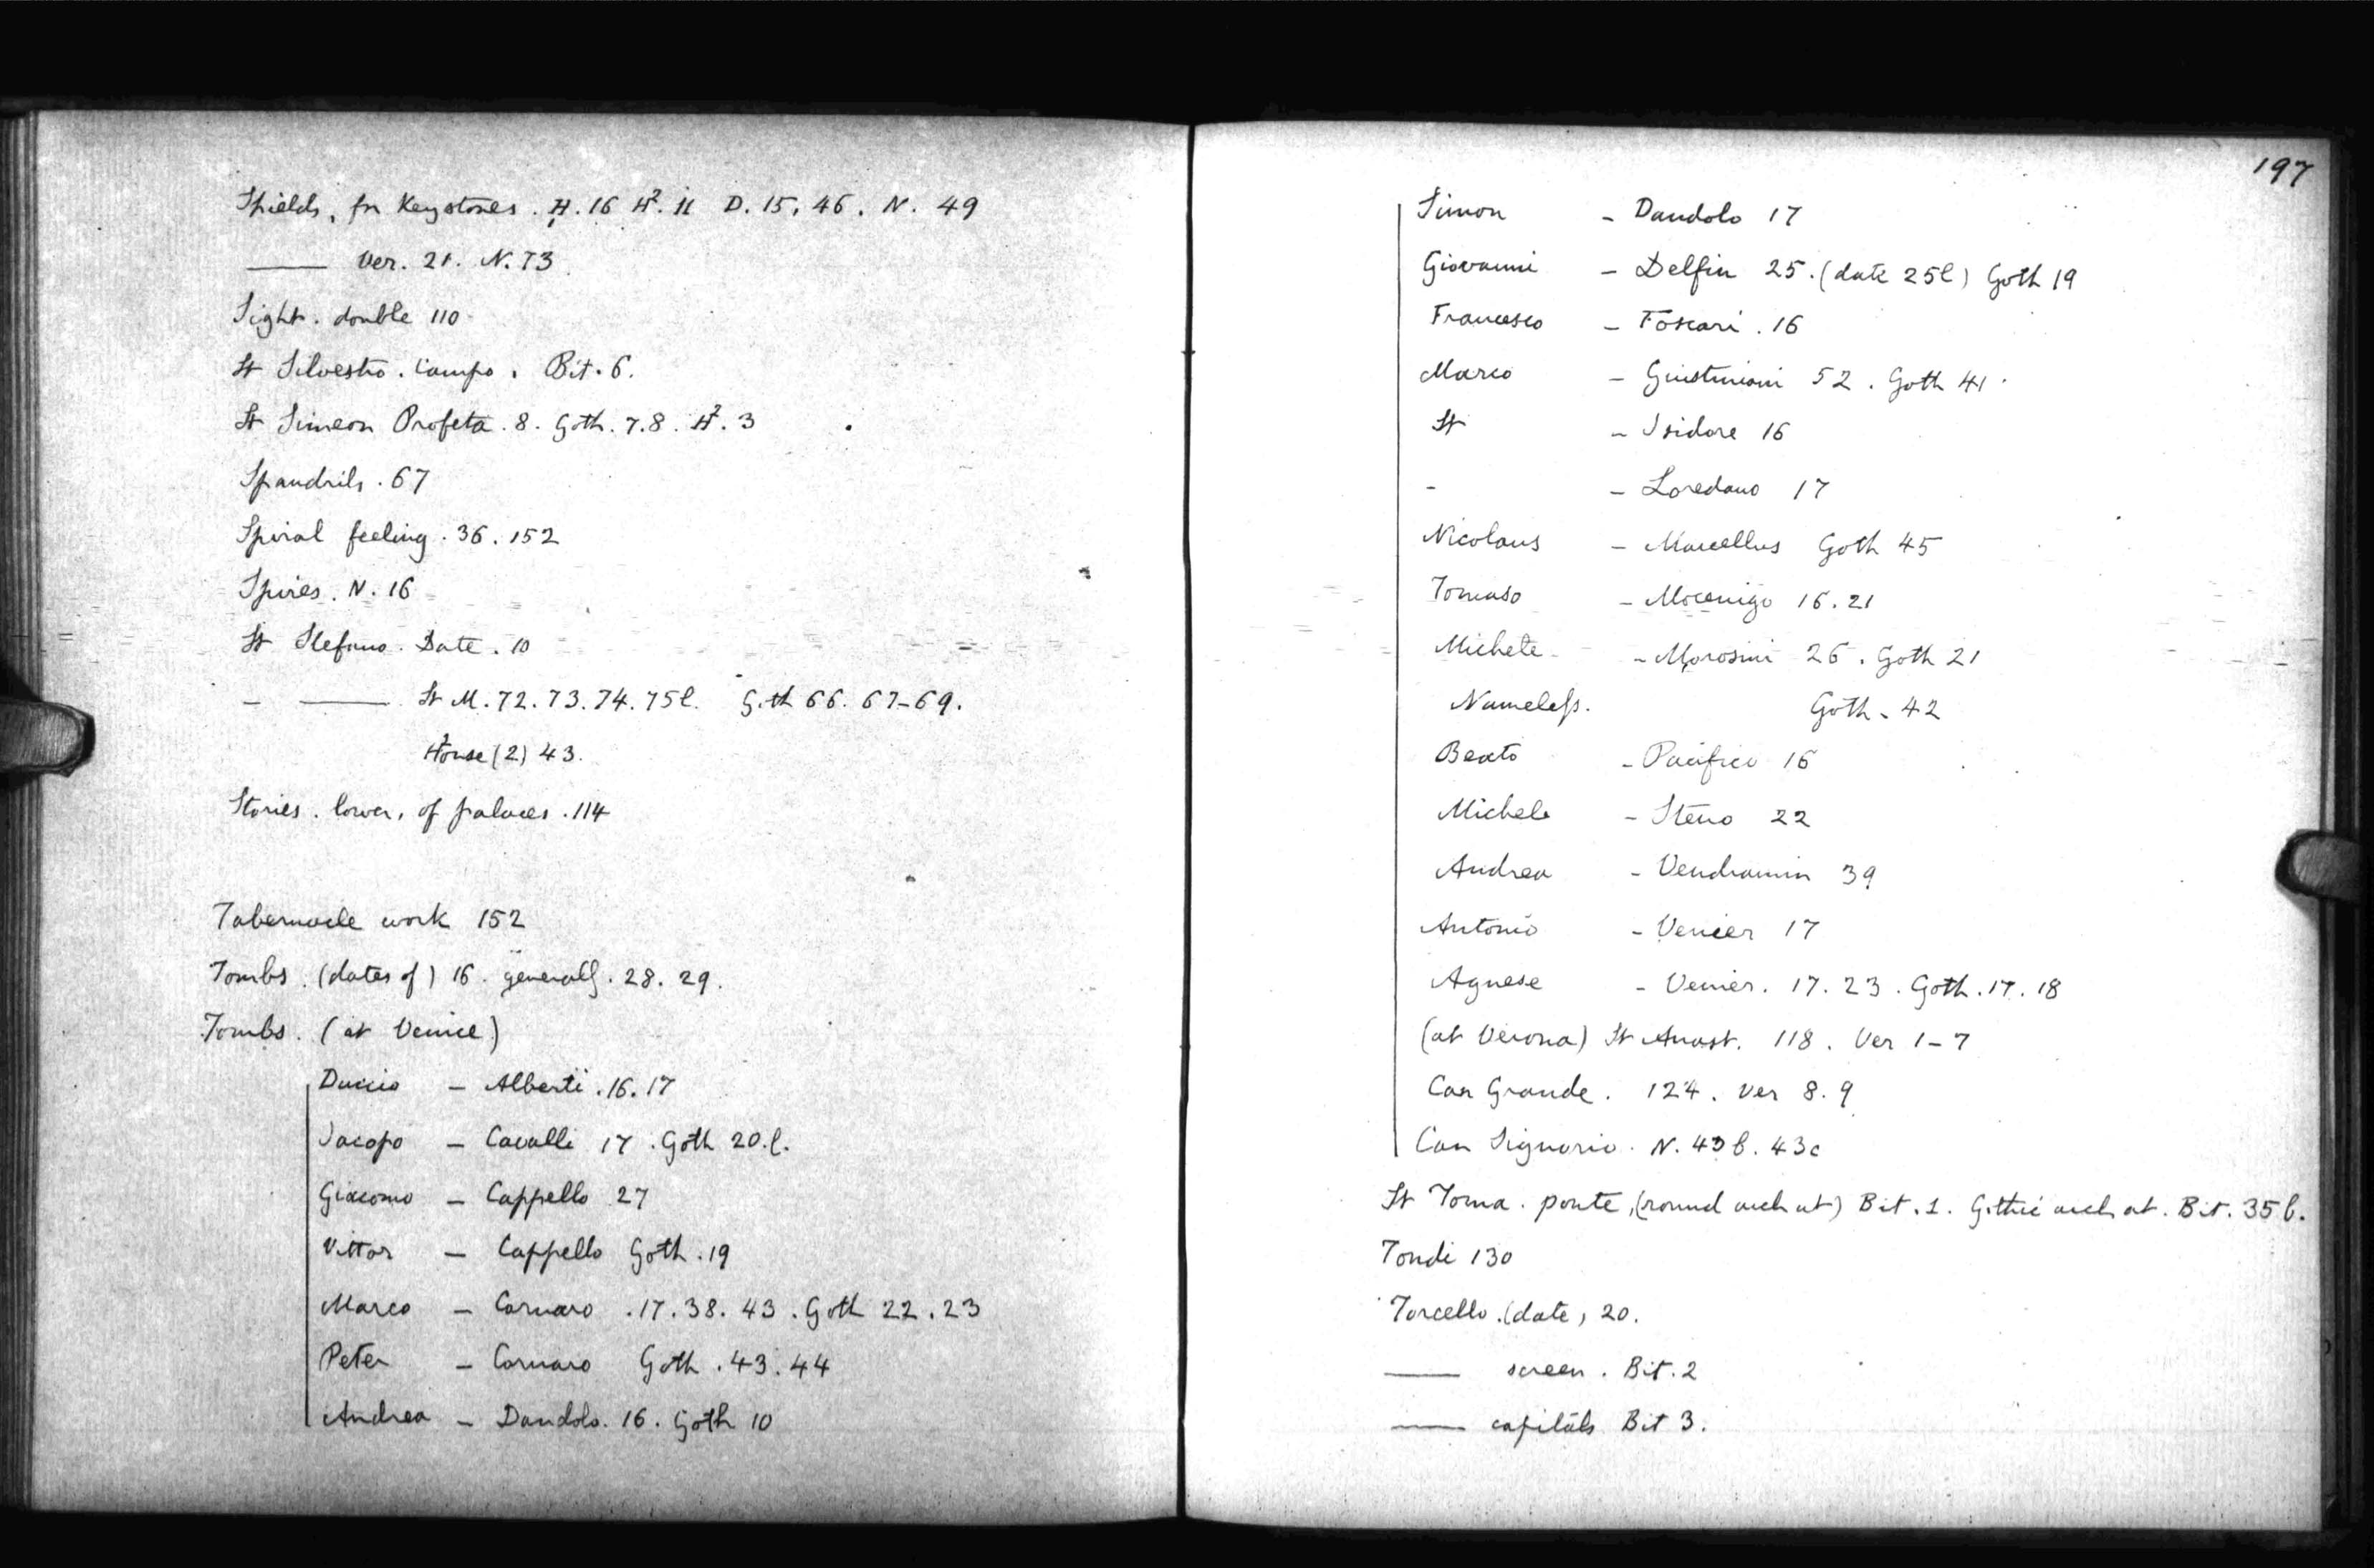 Shields, for Keystones. H. 16 H². 11 D. 15, 46. N. 49
—— Ver. 21. N. 73
Sight. double 110
St Silvestro. Campo. Bit. 6.
St Simeon Profeta. 8. Goth. 7.8. H². 3
Spandrils. 67
Spiral feeling. 36. 152
Spires. N. 16
St Stefano. Date. 10
- —— St M. 72. 73. 74. 75l. Goth 66. 67-69.
House (2) 43.
Stories. lower, of palaces. 114
Tabernacle work 152
Tombs. (dates of) 16. generally. 28. 29.
Tombs. (at Venice)
Duccio - Alberti. 16. 17
Jacopo - Cavalli 17. Goth 20.l.
Giacomo - Cappello 27
Vittor - Cappello Goth. 19
Marco - Cornaro. 17. 38. 43. Goth 22. 23
Peter - Cornaro Goth. 43. 44
Andrea - Dandolo. 16. Goth 10
197
Simon - Dandolo 17
Giovanni - Delfin 25. (date 25l) Goth 19
Francesco - Foscari. 16
Marco - Giustiniani 52. Goth 41.
St - Isidore 16
- - Loredano 17
Nicolaus - Marcellus Goth 45
Tomaso - Mocenigo 16. 21
Michele - Morosini 26. Goth 21
Nameless. Goth. 42
Beato - Pacifico 16
Michele - Steno 22
Andrea - Vendramin 39
Antonio - Venier 17
Agnese - Venier. 17. 23. Goth. 17. 18
(at Verona) St Anast. 118. Ver 1-7
Can Grande. 124. Ver 8. 9
Can Signorio. N. 43b. 43c
St Toma. ponte, (round arch at) Bit. 1. Gothic arch at. Bit. 35 b.
Tondi 130
Torcello. (date, 20.
—— screen. Bit. 2
—— capitals Bit 3.